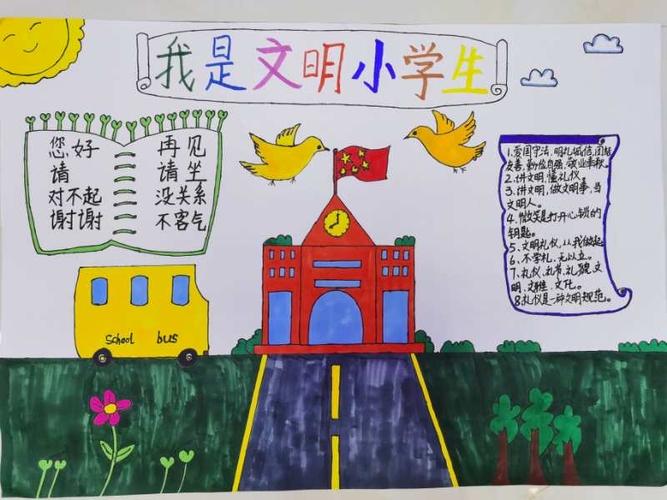 我是文明小学生
您好
再见
请
请坐
对不起
没关系
谢谢
不客气
School bus
1.爱国守法,明礼诚信,团结
友善,勤俭自强,敬业奉献。
2.讲文明,懂礼仪。
3.讲文明,做文明事,当
文明人。
4.微笑是打开心锁的
钥匙。
5、文明礼仪,从我做起
6、不学礼,无以立。
7、礼仪、礼节、礼貌,文
明、文雅、文化。
8.礼仪是一种文明规范。